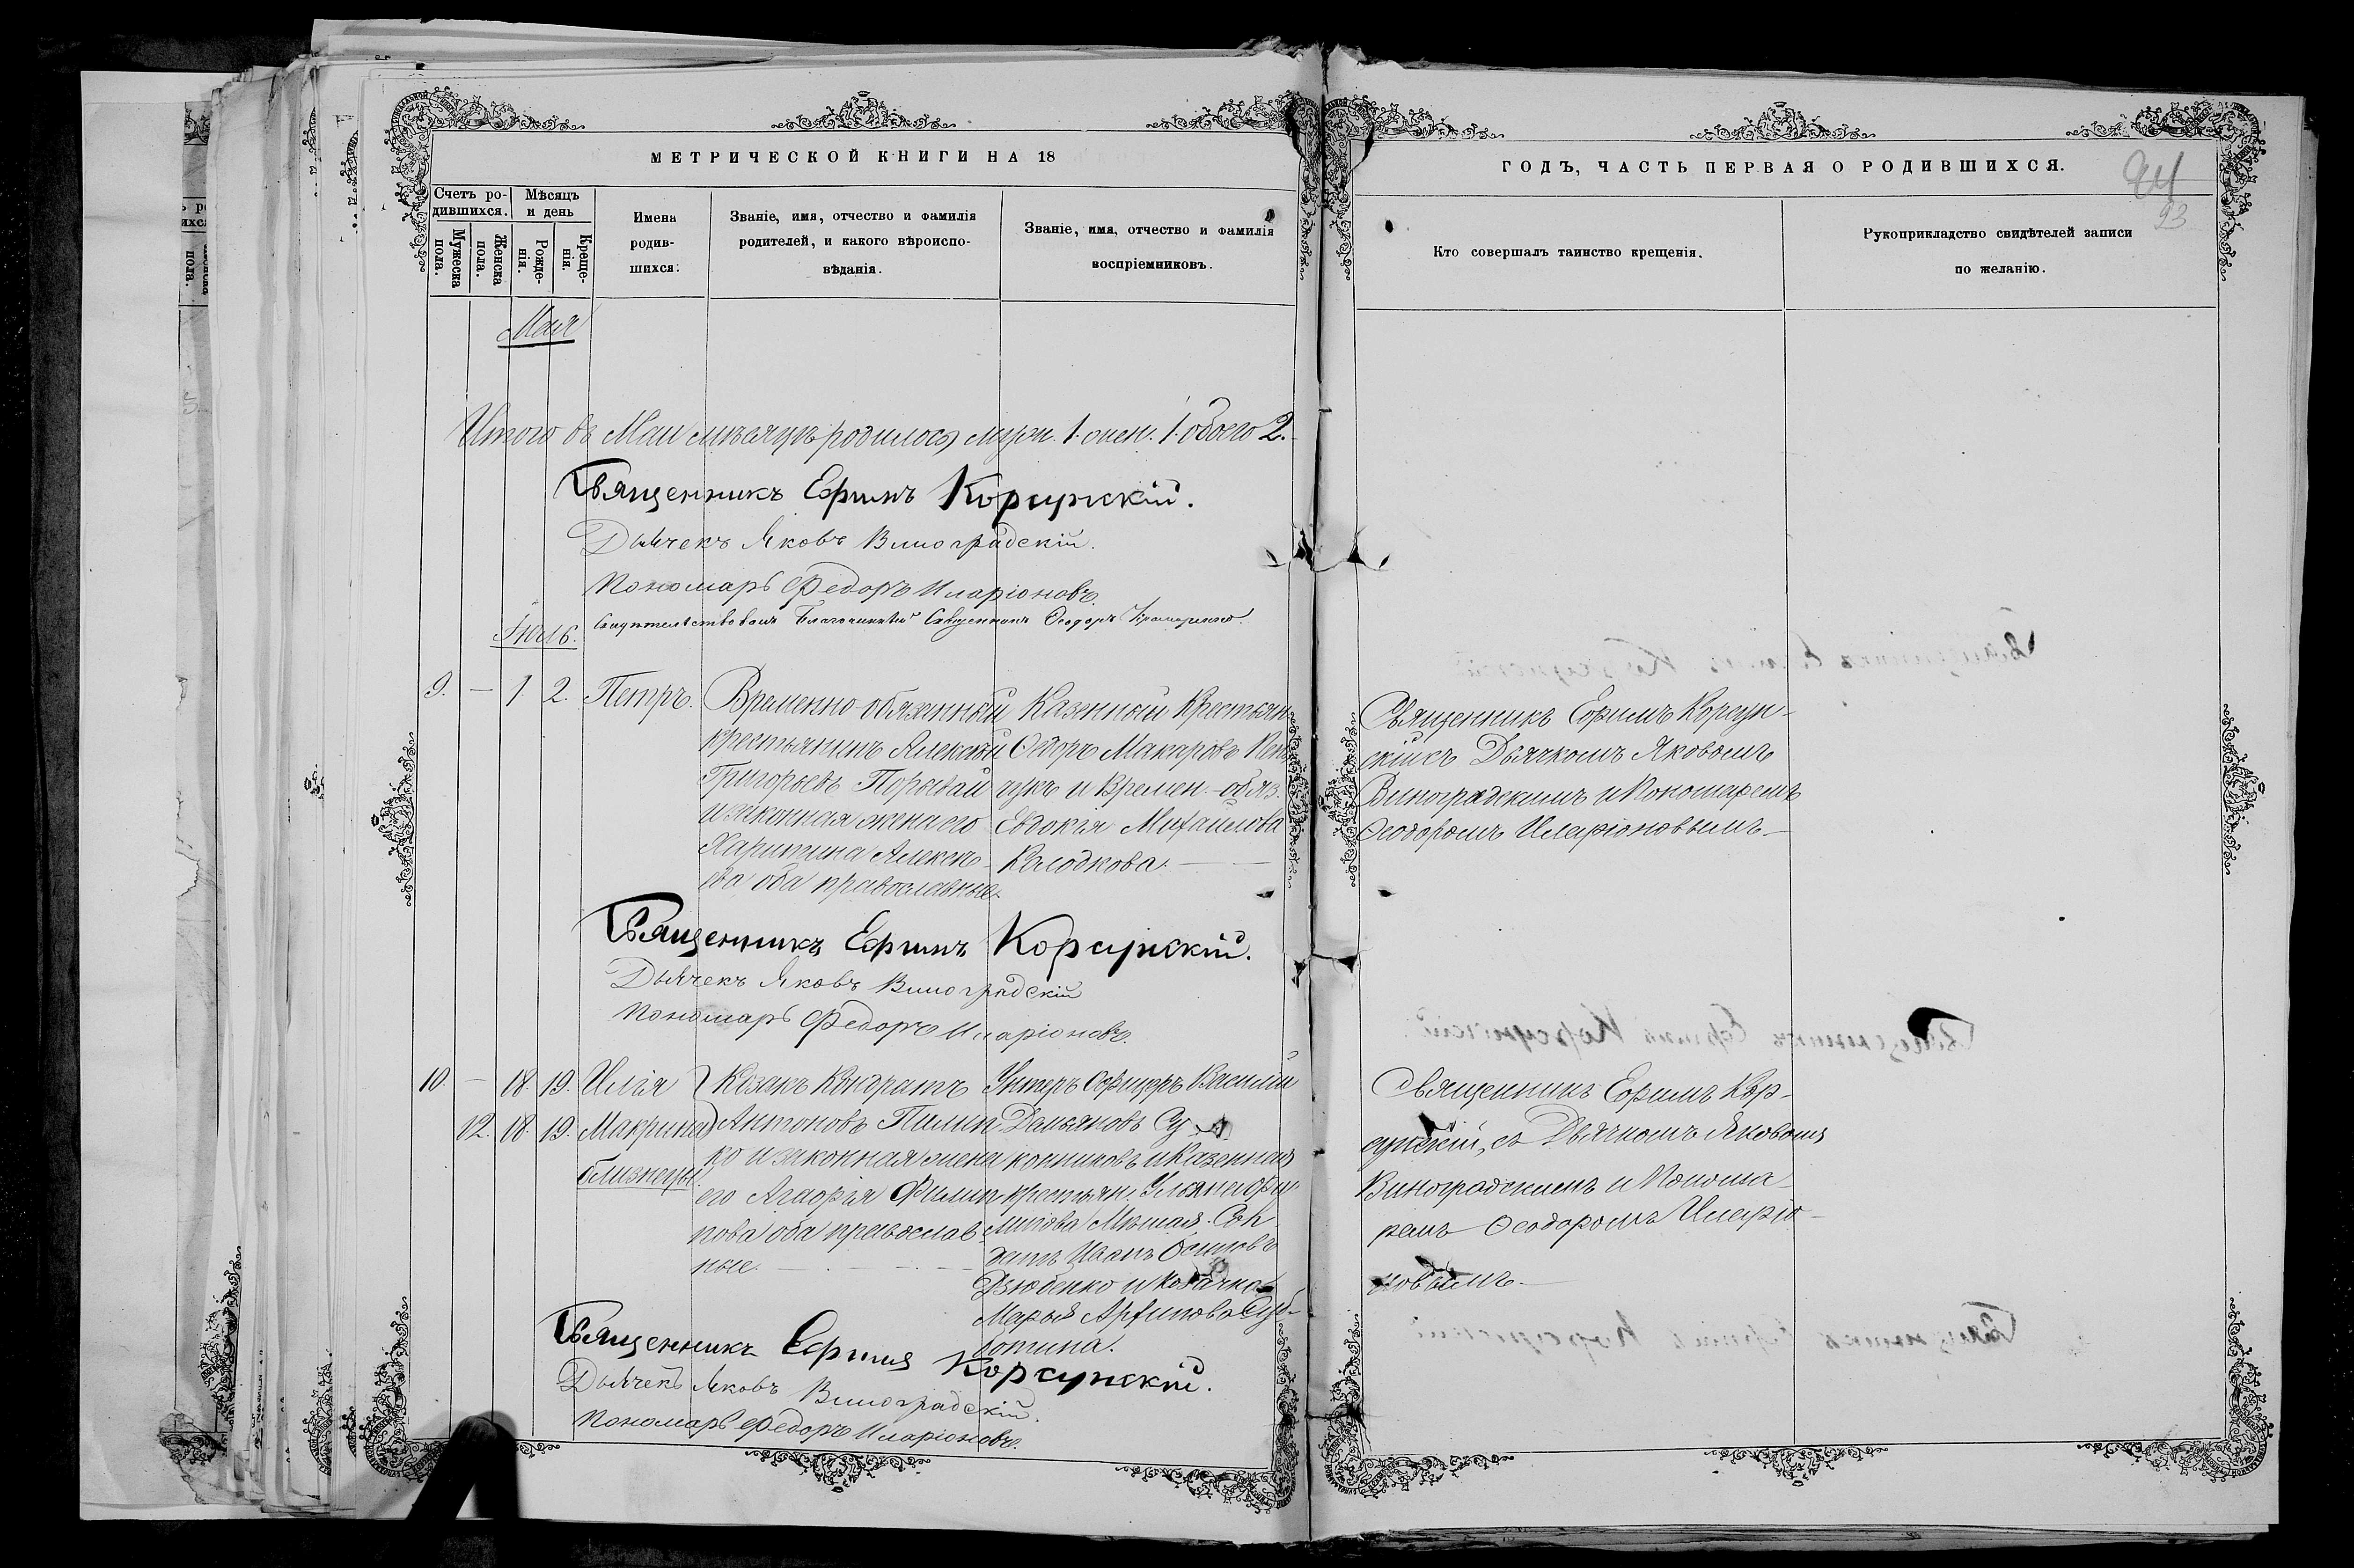 МЕТРИЧЕСКОЙ КНИГИ НА 18
Счетъ ро-
дившихся.
Мѣсяцъ
и день
Мужеска
пола.
Женска
пола.
Рожде-
нія.
Креще-
нія.
Имена
родив-
шихся.
Званіе, имя, отчество и фамилія
родителей, и какого вѣроиспо-
вѣданія.
Званіе, имя, отчество и фамилія
воспріемниковъ.
Мая
Итого въ Маи мѣсяцѣ родилось муж. 1. жен. 1. обоего 2.
Священникъ Ефимъ Корсунскій.
Дьячекъ Яковъ Виноградскій.
Пономарь Федоръ Иларіоновъ.
Свидѣтельствовалъ Благочинный Священникъ Ѳеодоръ
Іюль.
9. — 1. 2. Петръ.
Временно-обязанный
крестьянинъ Алексѣй
Григорьевъ Порывай
и законная жена его
Харитина Алексѣ-
ева оба православные.
Казенный Крестьян.
Ѳедоръ Макаровъ
и Времен.-обяз.
Евдокія Михаилова
Колодкова. —
Священникъ Ефимъ Корсунскій.
Дьячекъ Яковъ Виноградскій
Пономарь Федоръ Иларіоновъ.
10. — 18. 19. Илія
12. 18. 19. Макрина
близнецы
Козакъ Кондратъ
Антоновъ Пилип-
ко и законная жена
его Агафія Филип-
пова оба православ-
ные. —
Унтеръ Офицеръ Василій
Демьяновъ Су
конниковъ и Казенная
крестьян. Ульяна
Сол-
датъ Иванъ Осиповъ
Дзюбенко и Козачка
Марья Архипова Суб-
ботина.
Священникъ Ефимъ Корсунскій.
Дьячекъ Яковъ Виноградскій.
Пономарь Федоръ Иларіоновъ.
ГОДЪ, ЧАСТЬ ПЕРВАЯ О РОДИВШИХСЯ.
94
93
Кто совершалъ таинство крещенія.
Рукоприкладство свидѣтелей записи
по желанію.
Священникъ Ефимъ Корсун-
скій съ Дьячкомъ Яковомъ
Виноградскимъ и Пономаремъ
Ѳеодоромъ Иларіоновымъ.—
Священникъ Ефимъ Кор-
сунскій, съ Дьячкомъ Яковомъ
Виноградскимъ и Понома-
ремъ Ѳеодоромъ Иларіо-
новымъ.—